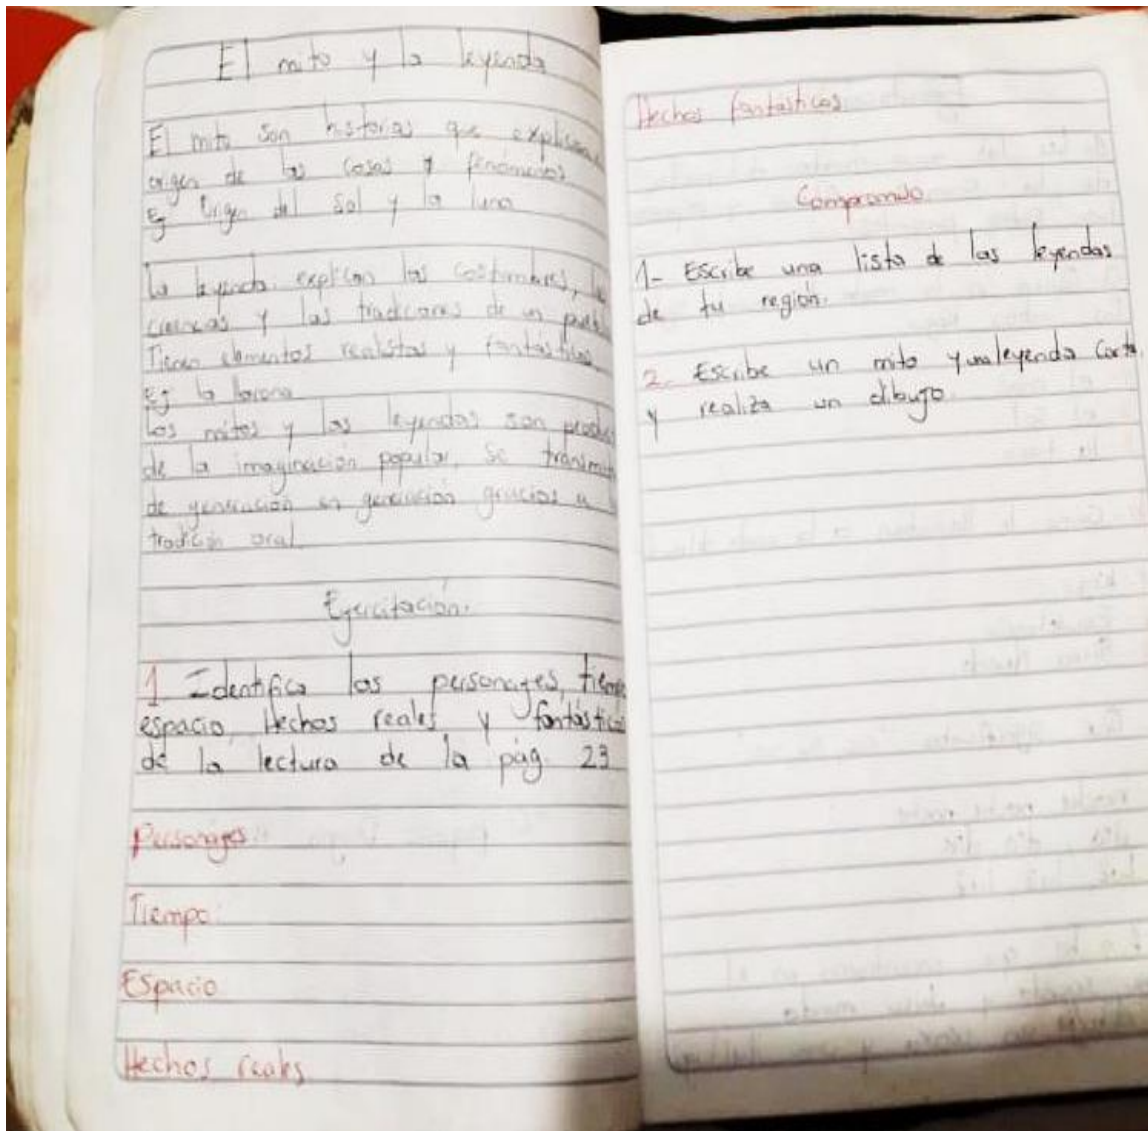 El mito y la leyenda
El mito son historias que explican
origen de las cosas y fenómenos
Ej Origen del Sol y la luna
La leyenda explican las costumbres,
creencias y las tradiciones de un
Tienen elementos realistas y fantásticos
Ej la llorona
Los mitos y las leyendas son
de la imaginación popular, se
de generación en generación gracias a
tradición oral
Ejercitación.
1 Identifica los personajes,
espacio, Hechos reales y
de la lectura de la pág. 23
Personajes:
Tiempo:
Espacio
Hechos reales
Hechos fantásticos
Compromiso
1- Escribe una lista de las leyendas
de tu región.
2. Escribe un mito y una leyenda corta
y realiza un dibujo